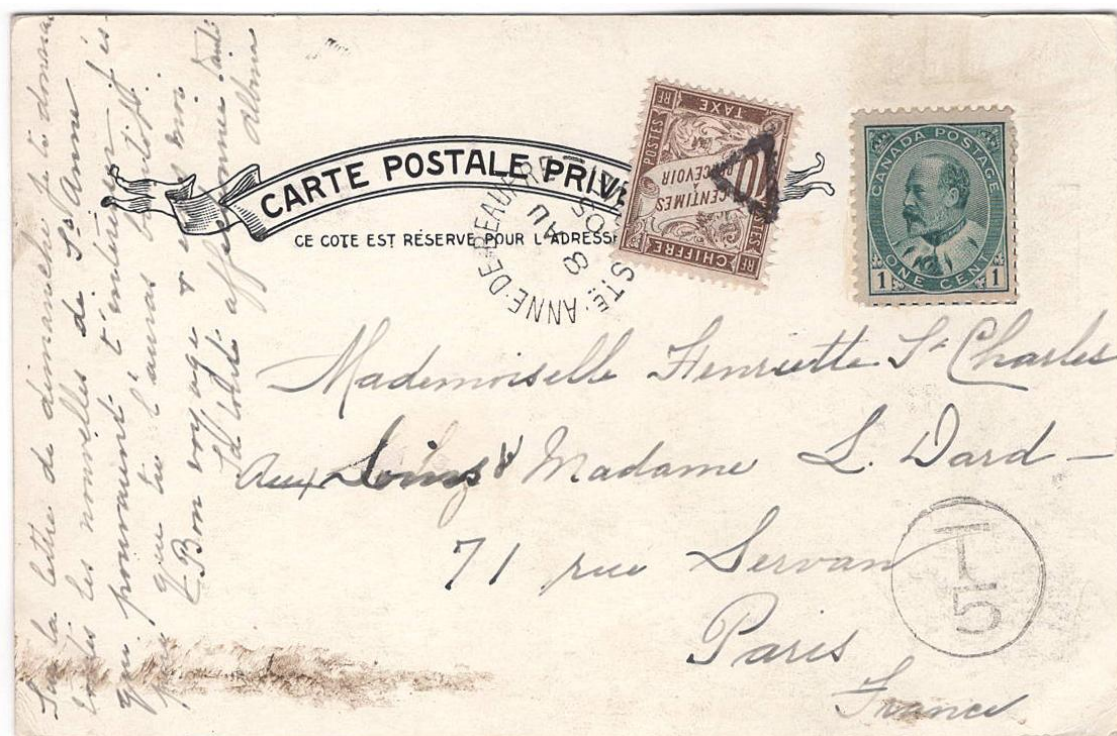 CARTE POSTALE PRIV
CE COTE EST RÉSERVÉ POUR L'ADRESSE
STE. ANNE-DE-BEAUPRÉ
AU 8
05
CHIFFRE
TAXE
POSTES
POSTES
RF
RF
RF
10
CENTIMES
À
PERCEVOIR
CANADA POSTAGE
1 ONE CENT 1
Mademoiselle Henriette St Charles
Aux Soins d Madame L. Dard -
71 rue Servan
Paris
France
T
5
la lettre de dimanche je te donnais
toutes les nouvelles de Ste Anne
qui pouvaient t'intéresser j'es-
père que tu l'auras bientôt.
Bon voyage &
La toute affectionnée
Albina